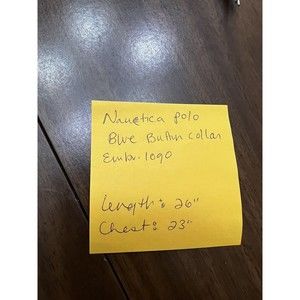 Nautica polo
Blue Button collar
Emb. logo
Length: 26"
Chest: 23"